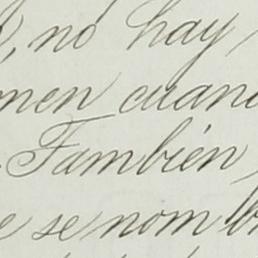 , no hay
men cuand
También
e se nomb